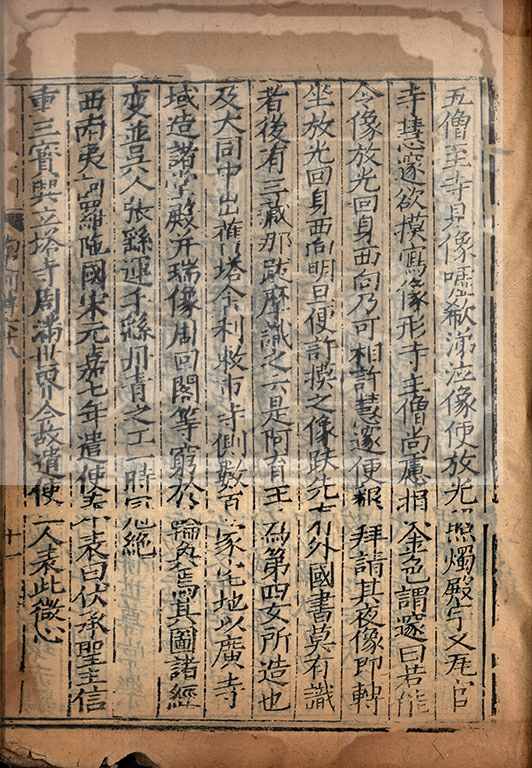 五僧至寺見像噓欷涕泣像使放光照燭殿宇又瓦官
寺慧邃欲摸寫像形寺主僧尚慮損金色謂邃曰若能
令像放光回身西向乃可相許慧邃便報拜請其夜像即轉
坐放光回身西向明旦便許摸之像趺先有外國書莫有識
者後有三藏那跋摩識之云是阿育王為第四女所造也
及大同中出舊塔舍利敕市寺側數百家宅地以廣寺
域造諸堂殿并瑞像周回閣等窮於輪奐焉其圖諸經
變並吳人張繇運手繇丹青之工一時冠絕
西南夷訶羅陁國宋元嘉七年遣使奉表曰伏承聖主信
重三寶興立塔寺周滿世界今故遣使二人表此微心
十一